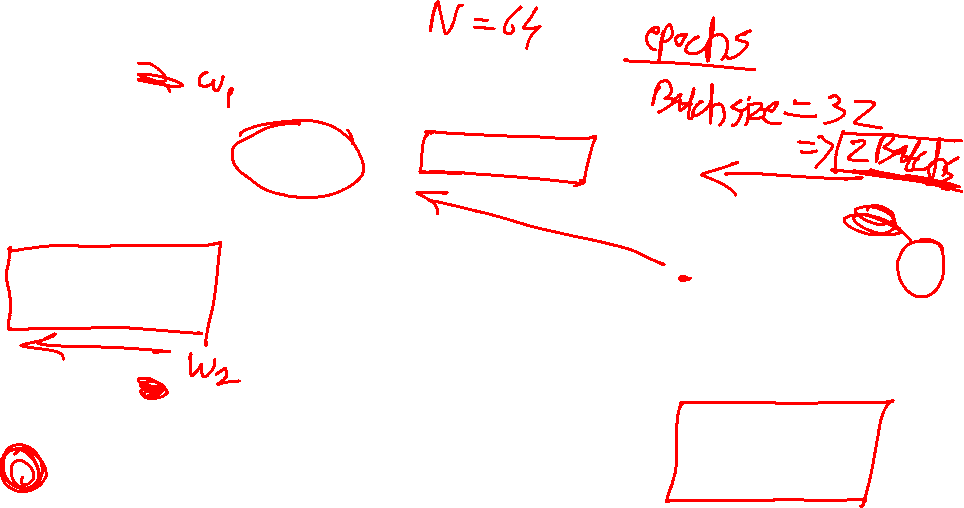 N = 64
epochs
w1
Batch size = 32
=> 2 Batchs
W2